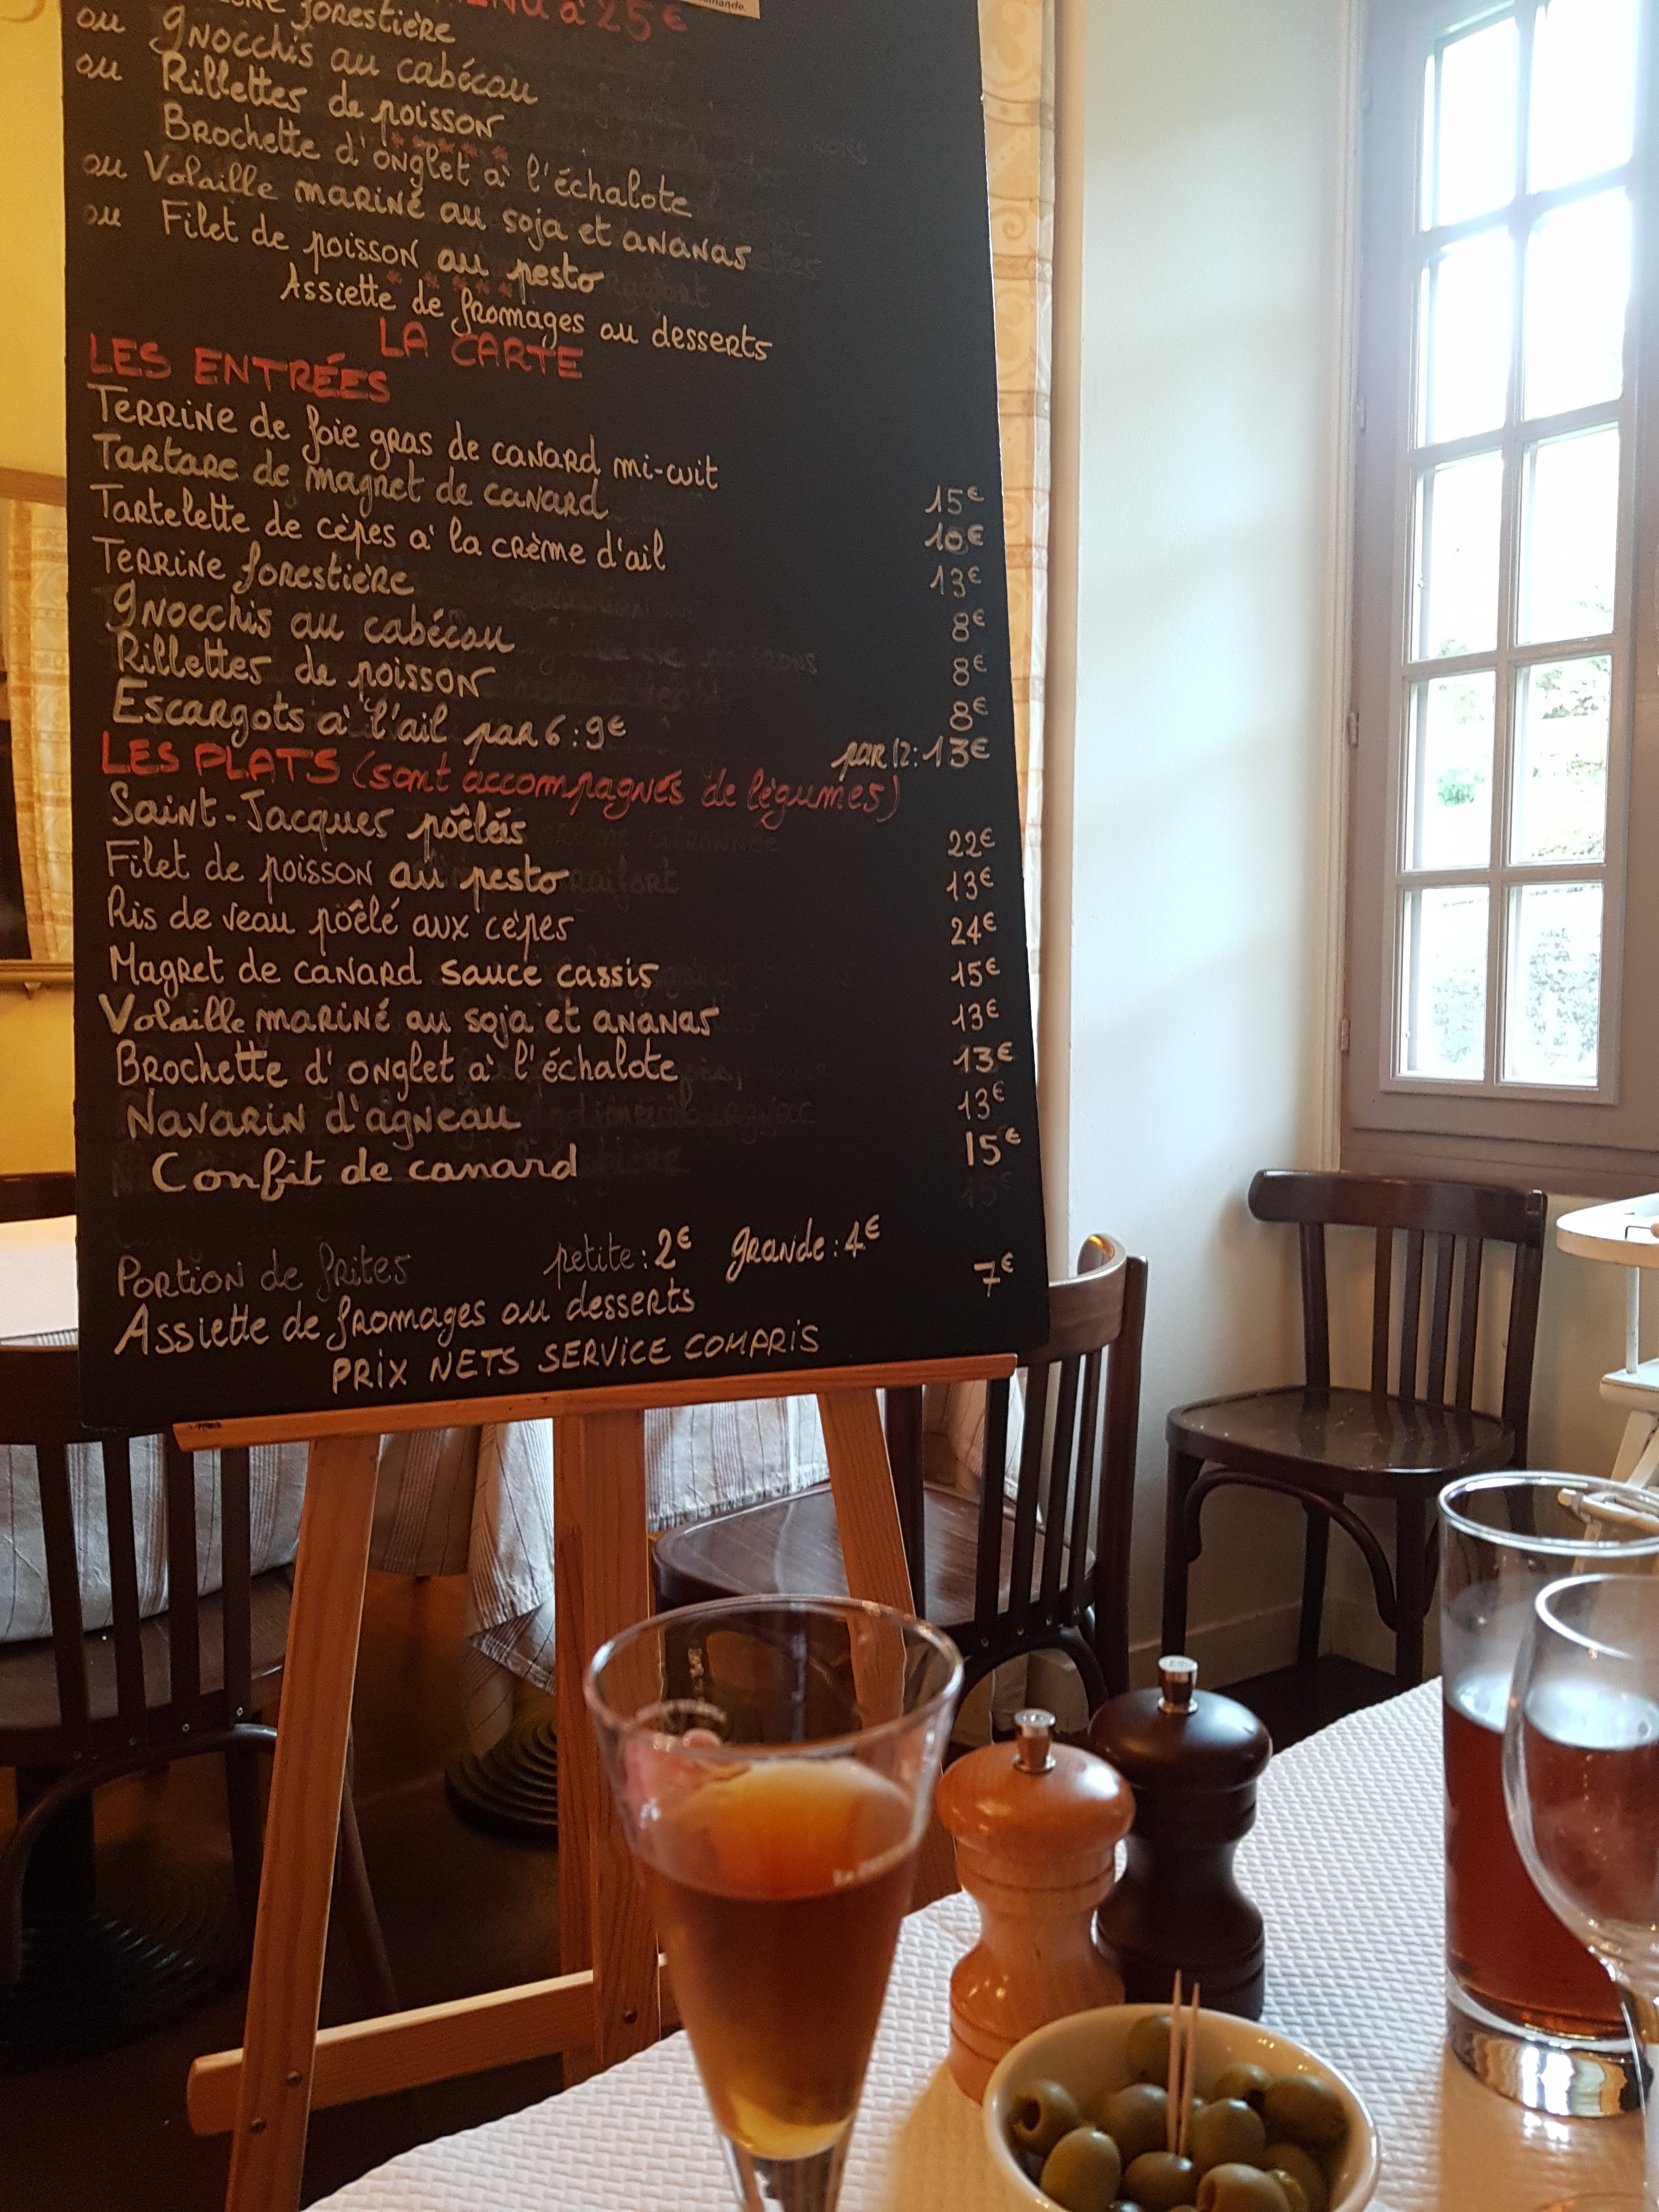 MENU à 25€
forestière
ou gnocchis au cabécou
ou Rillettes de poisson
*****
Brochette d'onglet à l'échalote
ou Volaille mariné au soja et ananas
ou Filet de poisson au pesto
*****
Assiette de fromages ou desserts
LA CARTE
LES ENTRÉES
Terrine de foie gras de canard mi-cuit 15€
Tartare de magret de canard 10€
Tartelette de cèpes à la crème d'ail 13€
Terrine forestière 8€
gnocchis au cabécou 8€
Rillettes de poisson 8€
Escargots à l'ail par 6 : 9€ par 12 : 13€
LES PLATS (sont accompagnés de légumes)
Saint-Jacques pôêlées 22€
Filet de poisson au pesto 13€
Ris de veau pôêlé aux cèpes 24€
Magret de canard sauce cassis 15€
Volaille mariné au soja et ananas 13€
Brochette d'onglet à l'échalote 13€
Navarin d'agneau 13€
Confit de canard 15€
Portion de frites petite : 2€ grande : 4€
Assiette de fromages ou desserts 7€
PRIX NETS SERVICE COMPRIS